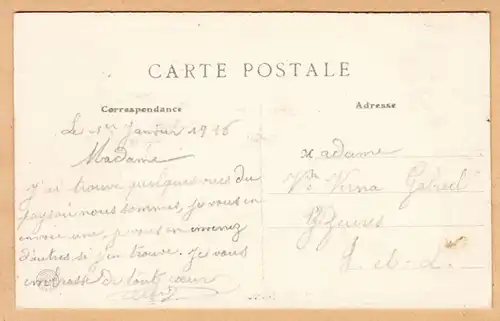 CARTE POSTALE
Correspondance
Adresse
Le 1er Janvier 1916
Madame
J'ai trouve quelques vues du
pays ou nous sommes, je vous en
envoie une, je vous en enverrez
d'autres si j'en trouve. Je vous
embrasse de tout cœur
Madame
Vve Verna Gabriel
S. et. L.